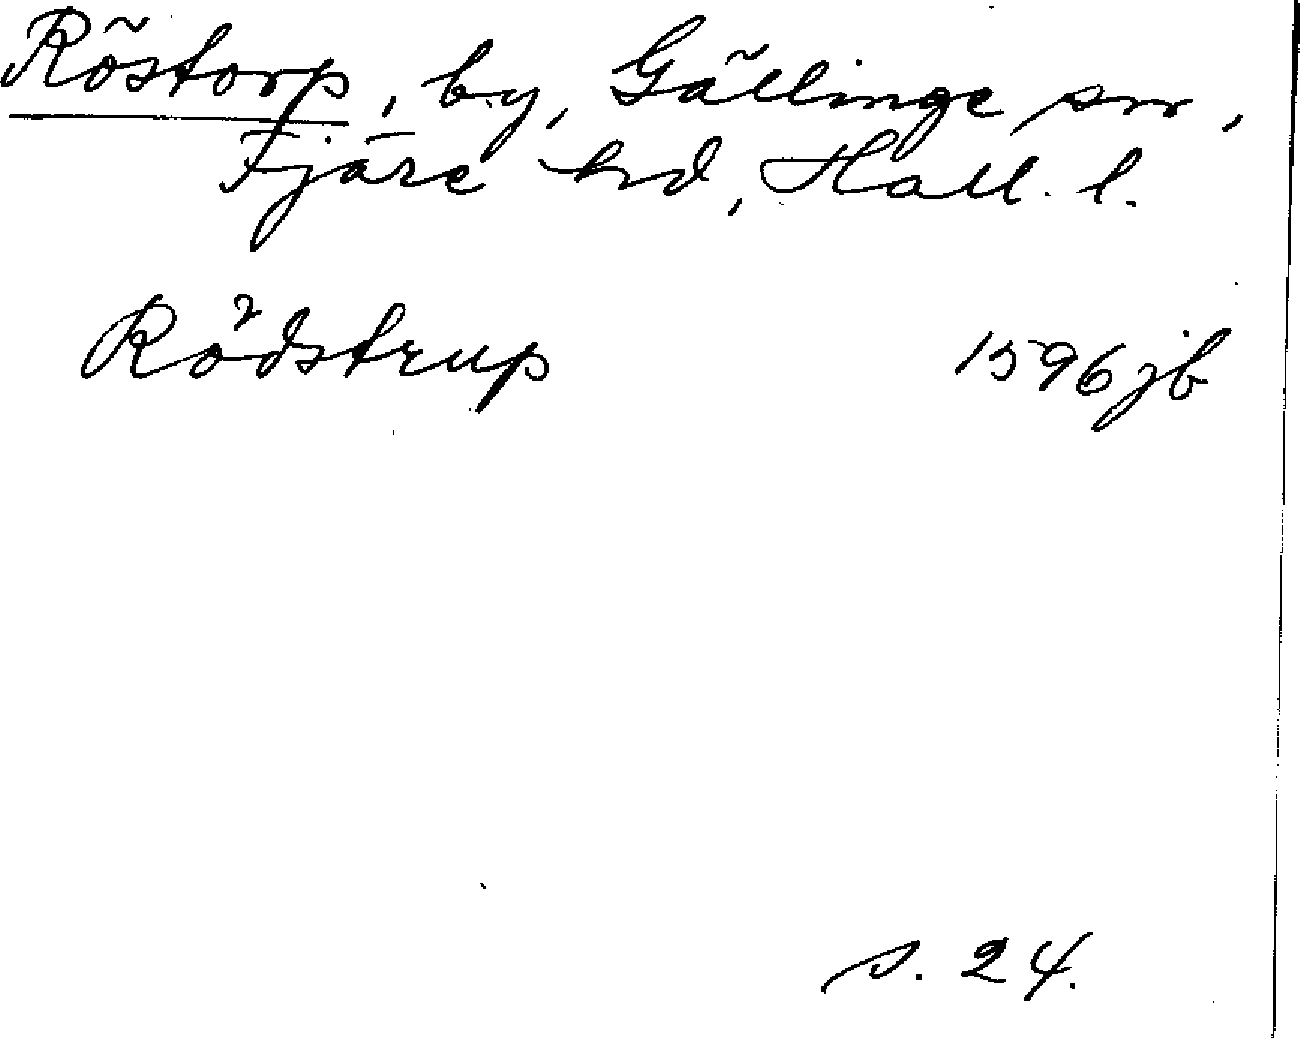 Röstorp, by, Gällinge sn,
Fjäre hd, Hall. l.
Rödstrup 1596 jb
s. 24.